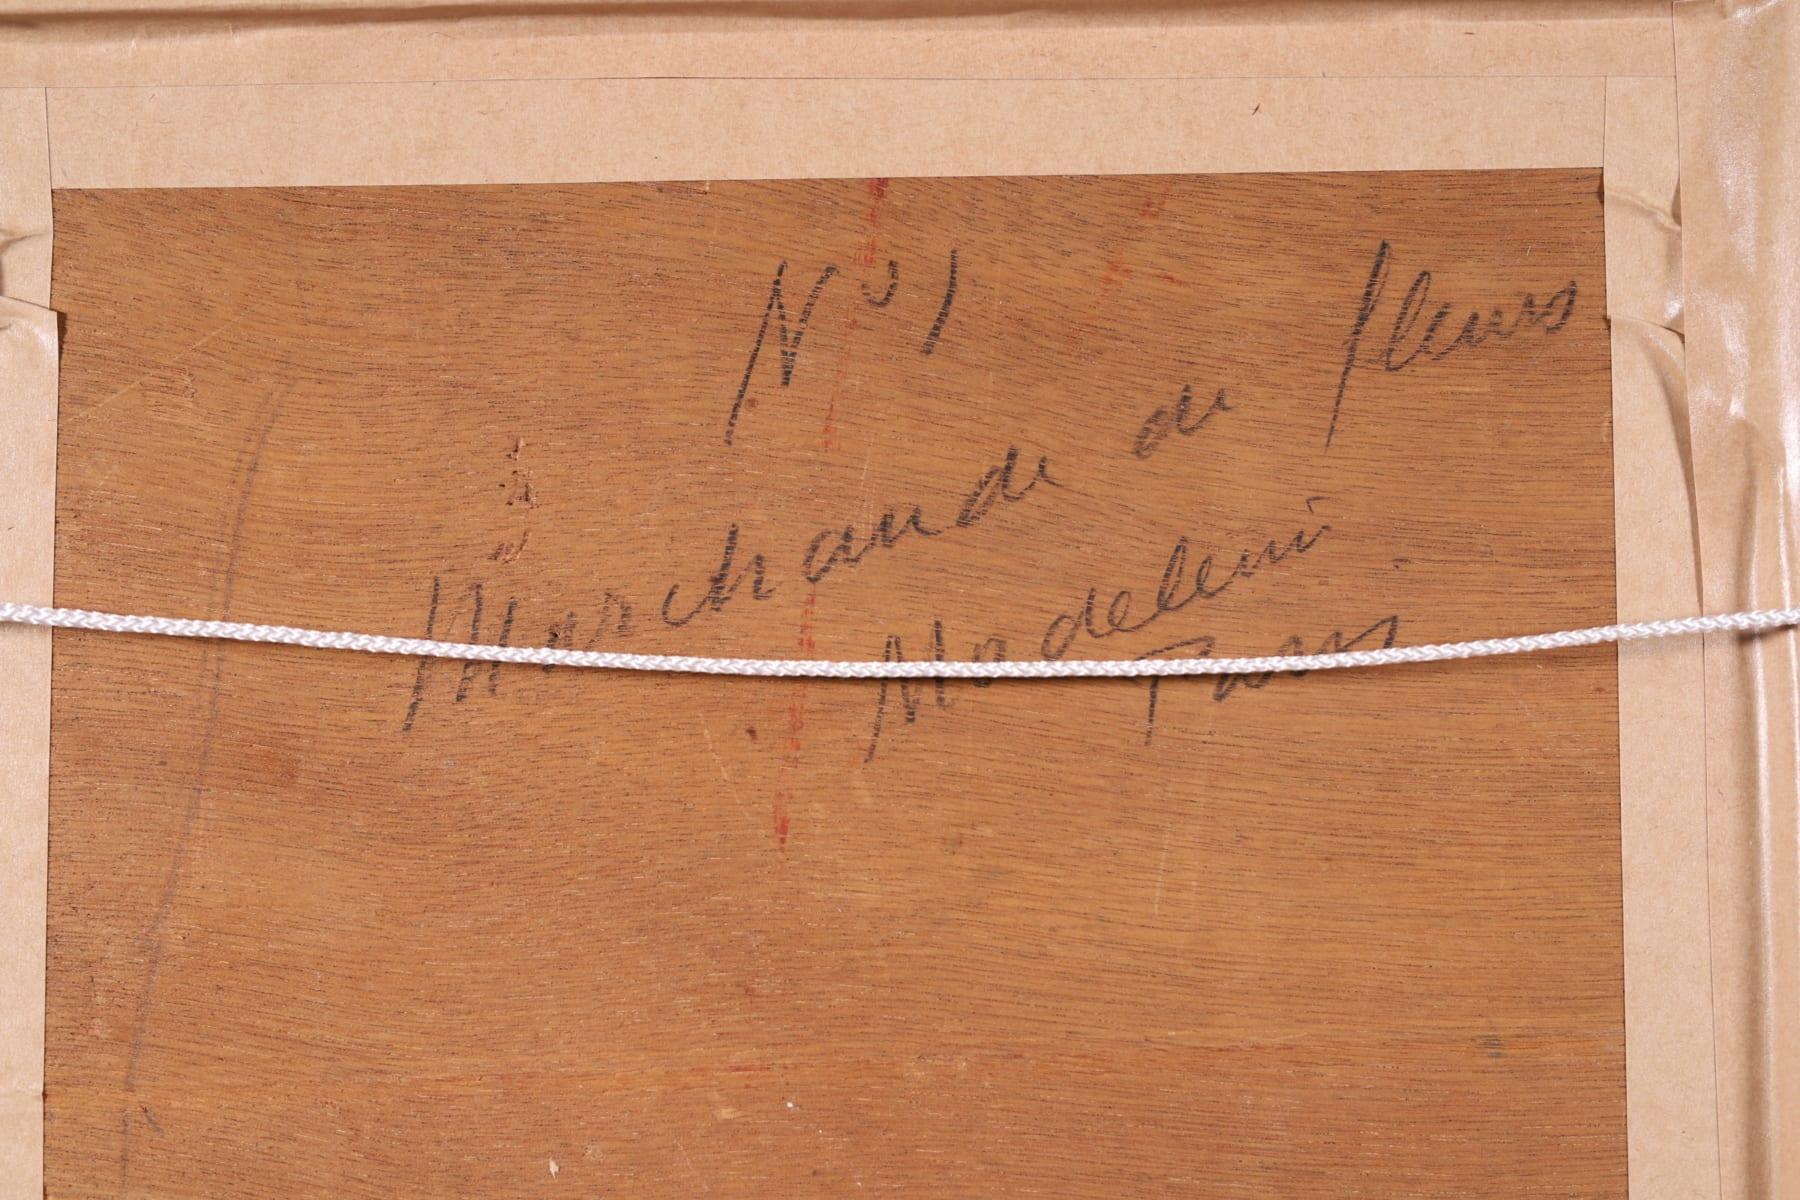 N° 1
Marchande de fleurs
Madeleine
Paris